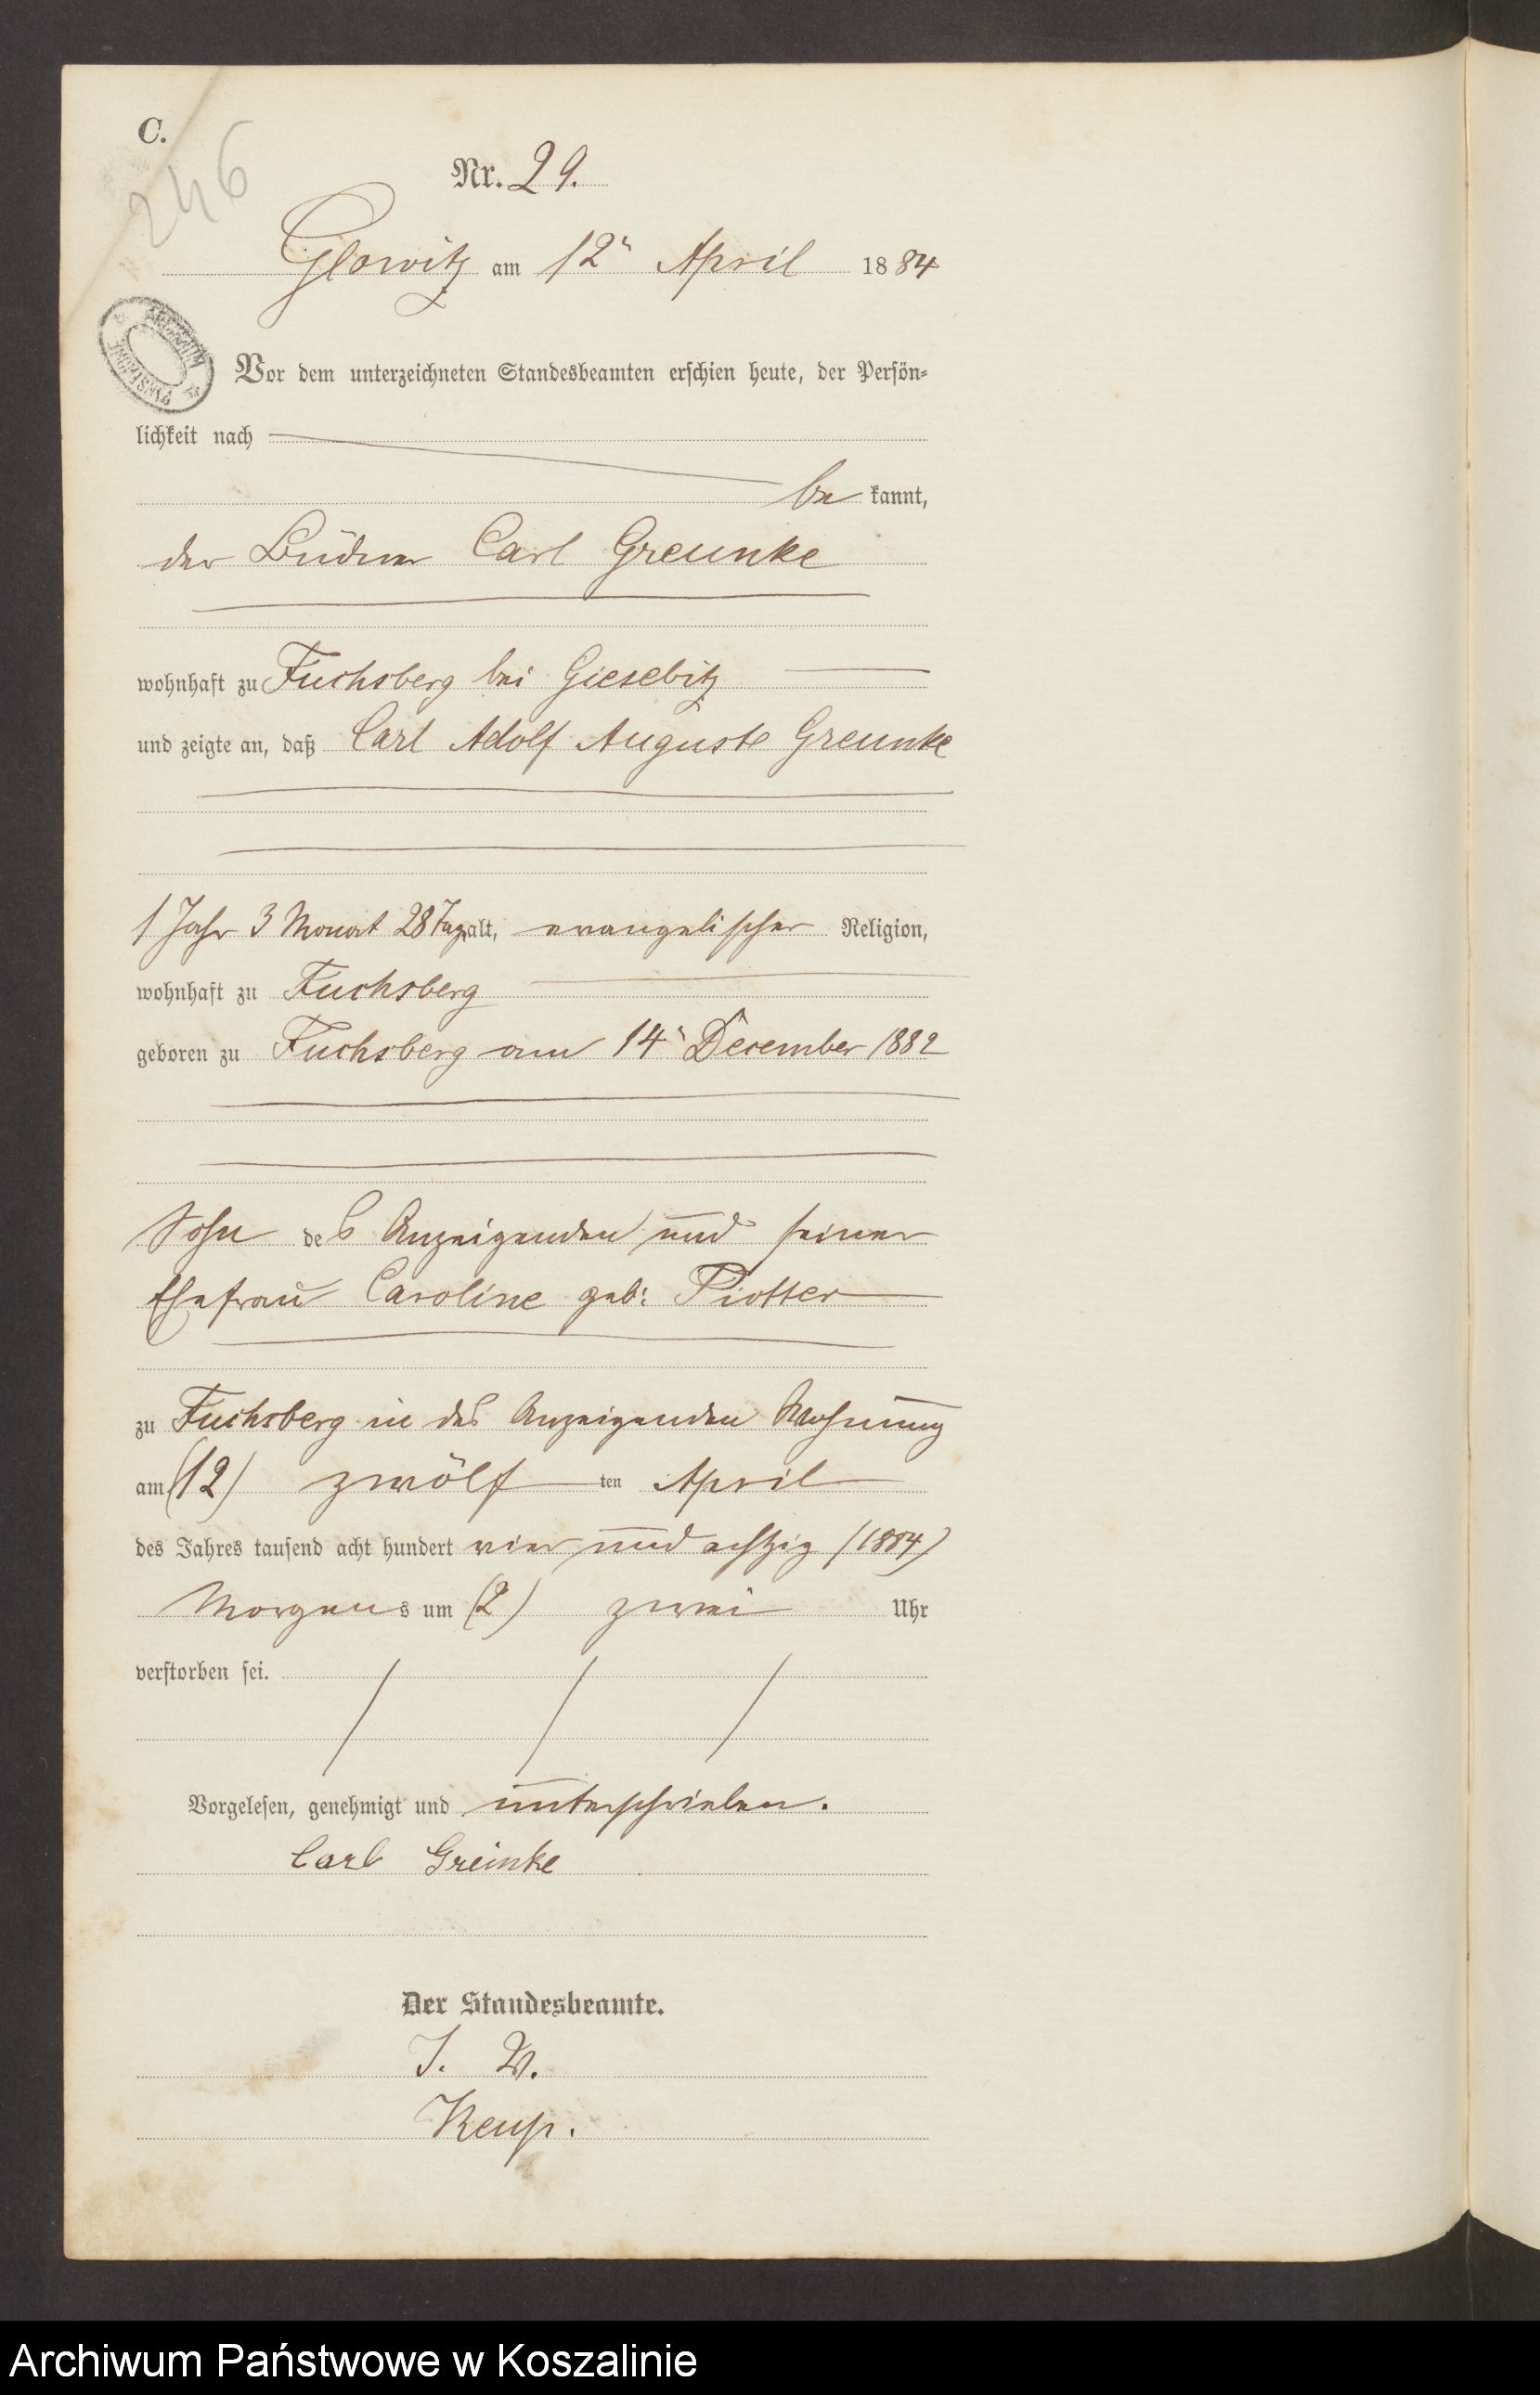 C.
246
Nr. 29.
Glowitz am 12n April 1884
Vor dem unterzeichneten Standesbeamten erschien heute, der Persön-
lichkeit nach
be kannt,
der Büdner Carl Greunke
wohnhaft zu Fuchsberg bei Giesebitz
und zeigte an, daß Carl Adolf August Greunke
1 Jahr 3 Monat 28 Tag alt, evangelischer Religion,
wohnhaft zu Fuchsberg
geboren zu Fuchsberg am 14n December 1882
Sohn des Anzeigenden und seiner
Ehefrau Caroline geb: Piotter
zu Fuchsberg in des Anzeigenden Wohnung
am (12) zwölf ten April
des Jahres tausend acht hundert vier und achtzig (1884)
Morgens um (2) zwei Uhr
verstorben sei.
Vorgelesen, genehmigt und unterschrieben.
Carl Greinke
Der Standesbeamte.
I. V.
Keup.
Archiwum Państwowe w Koszalinie